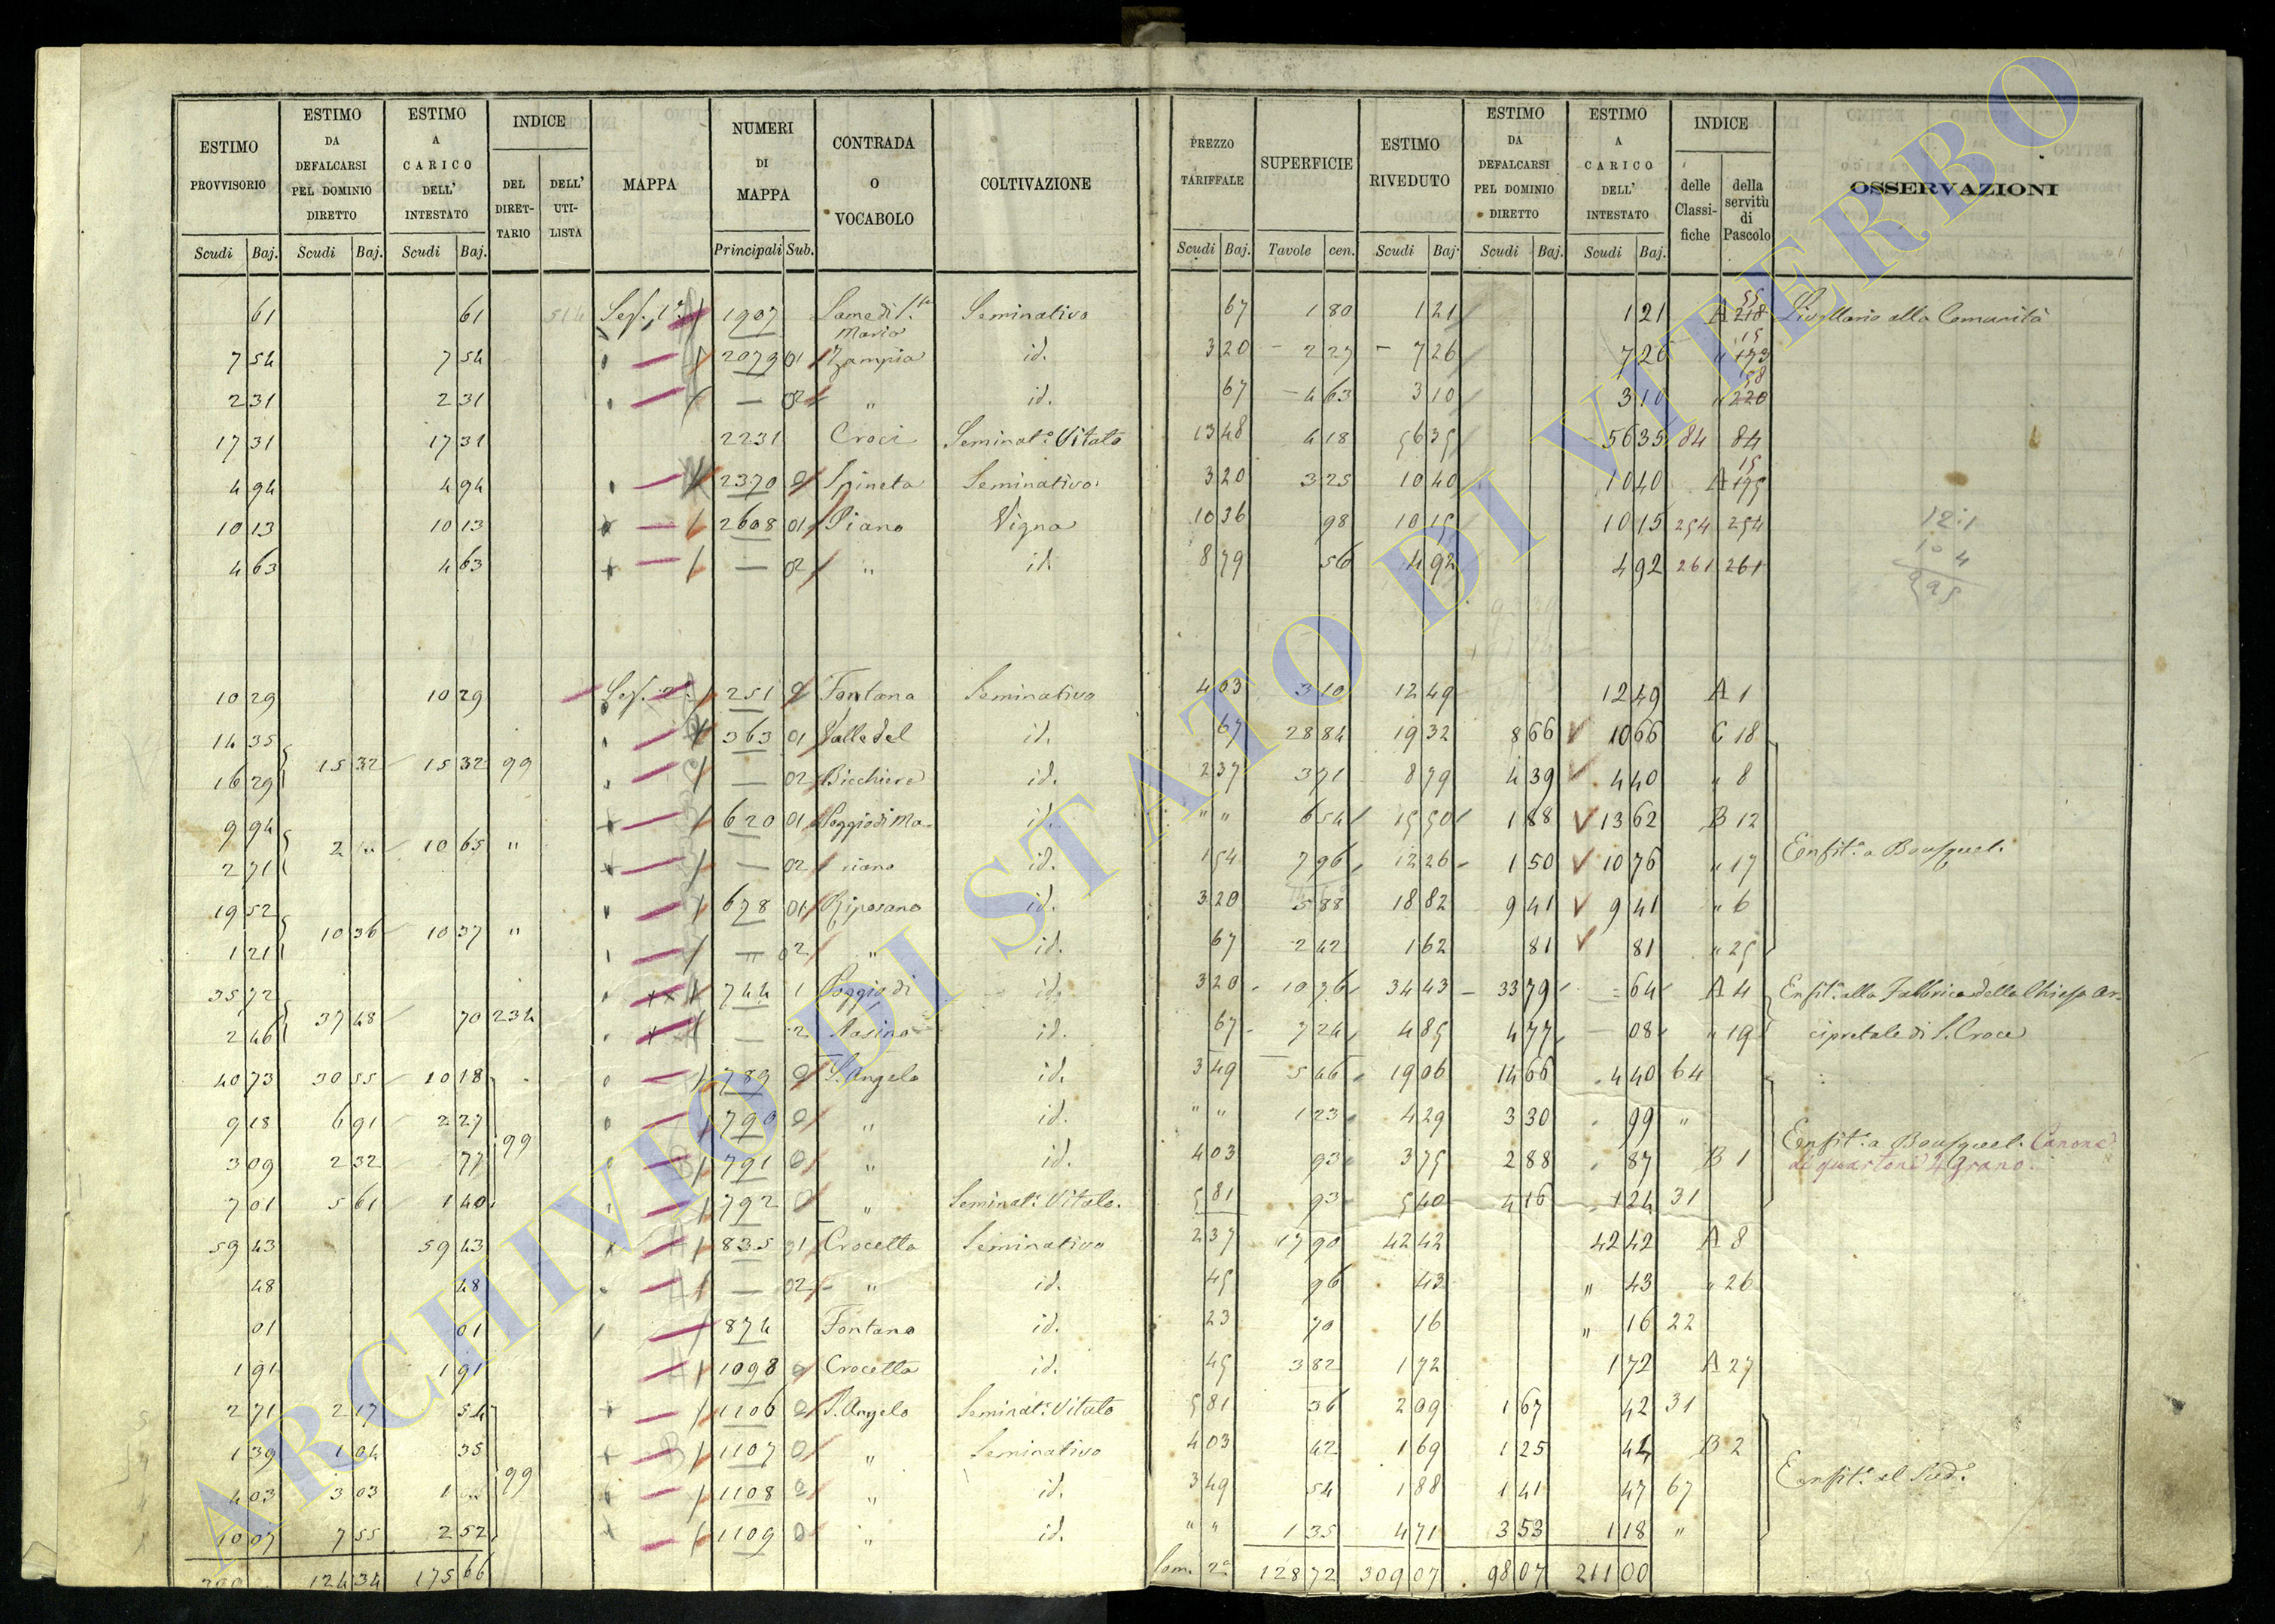 ESTIMO PROVVISORIO | ESTIMO DA DEFALCARSI PEL DOMINIO DIRETTO | ESTIMO A CARICO DELL' INTESTATO | INDICE | MAPPA | NUMERI DI MAPPA | CONTRADA O VOCABOLO | COLTIVAZIONE | PREZZO TARIFFALE | SUPERFICIE | ESTIMO RIVEDUTO | ESTIMO DA DEFALCARSI PEL DOMINIO DIRETTO | ESTIMO A CARICO DELL' INTESTATO | INDICE | OSSERVAZIONI
DEL DIRETTARIO | DELL' UTILISTA | delle Classifiche | della servitù di Pascolo
Scudi Baj. | Scudi Baj. | Scudi Baj. | Principali Sub. | Scudi Baj. | Tavole cen. | Scudi Baj. | Scudi Baj. | Scudi Baj.
61 | 61 | 514 | Sez. 1ª | 1907 | Maria | Seminativo | 67 | 1 80 | 1 21 | 1 21 | A 218 55 | Livellario alla Comunità
7 54 | 7 54 | 2079 01 | Zampia | id. | 3 20 | 2 27 | 7 26 | 7 26 | " 15
2 31 | 2 31 | — 02 | " | id. | 67 | 4 63 | 3 10 | 3 10 | " 220 58
17 31 | 17 31 | 2231 | Croci | Seminat.º Vitato | 13 48 | 4 18 | 56 35 | 56 35 | 84 | 84
4 94 | 4 94 | 2370 | Spineta | Seminativo | 3 20 | 3 25 | 10 40 | 10 40 | A 175 15
10 13 | 10 13 | 2608 01 | Piano | Vigna | 10 36 | 98 | 10 15 | 10 15 | 254 | 254
4 63 | 4 63 | — 02 | " | id. | 8 79 | 56 | 4 92 | 4 92 | 261 | 261
10 29 | 10 29 | Sez. 2ª | 251 | Fontana | Seminativo | 4 03 | 3 10 | 12 49 | 12 49 | A 1
14 35 | 363 01 | Valle del | id. | 67 | 28 84 | 19 32 | 8 66 | 10 66 | C 18
16 29 | 15 32 | 15 32 | 99 | — 02 | Bicchiere | id. | 2 37 | 3 71 | 8 79 | 4 39 | 4 40 | " 8
9 94 | 620 01 | Poggio di Ma- | id. | " " | 6 54 | 15 50 | 1 88 | 13 62 | B 12
2 71 | 10 65 | " | — 02 | riano | id. | 1 54 | 7 96 | 12 26 | 1 50 | 10 76 | " 17 | Enfit.ª a Bousquet.
19 52 | 678 01 | Riposano | id. | 3 20 | 5 88 | 18 82 | 9 41 | 9 41 | " 6
1 21 | 10 36 | 10 37 | " | — 02 | " | id. | 67 | 2 42 | 1 62 | 81 | 81 | " 25
35 72 | 744 1 | Poggio di | id. | 3 20 | 10 76 | 34 43 | 33 79 | 64 | A 4 | Enfit.ª alla Fabbrica della Chiesa Ar-
2 46 | 37 48 | 70 | 234 | — 2 | Nasino | id. | 67 | 7 24 | 4 85 | 4 77 | 08 | " 19 | cipretale di S. Croce
40 73 | 30 55 | 10 18 | 789 | S. Angelo | id. | 3 49 | 5 46 | 19 06 | 14 66 | 4 40 | 64
9 18 | 6 91 | 2 27 | 99 | 790 | " | id. | " " | 1 23 | 4 29 | 3 30 | 99 | "
3 09 | 2 32 | 77 | 791 | " | id. | 4 03 | 93 | 3 75 | 2 88 | 87 | B 1 | Enfit.ª a Bousquet. Canone di quartone 4 grano.
7 01 | 5 61 | 1 40 | 792 | " | Seminat.º Vitato. | 5 81 | 93 | 5 40 | 4 16 | 1 24 | 31
59 43 | 59 43 | 835 01 | Crocetta | Seminativo | 2 37 | 17 90 | 42 42 | 42 42 | A 8
48 | 48 | — 02 | " | id. | 45 | 96 | 43 | " 43 | " 26
01 | 01 | 874 | Fontana | id. | 23 | 70 | 16 | " 16 | 22
1 91 | 1 91 | 1098 | Crocetta | id. | 45 | 3 82 | 1 72 | 1 72 | A 27
2 71 | 2 17 | 54 | 1106 | S. Angelo | Seminat.º Vitato | 5 81 | 36 | 2 09 | 1 67 | 42 | 31
1 39 | 1 04 | 35 | 1107 | " | Seminativo | 4 03 | 42 | 1 69 | 1 25 | 44 | B 2
4 03 | 3 03 | 99 | 1108 | " | id. | 3 49 | 54 | 1 88 | 1 41 | 47 | 67 | Enfit.ª al Sud.º
10 07 | 7 55 | 2 52 | 1109 | " | id. | " " | 1 35 | 4 71 | 3 53 | 1 18 | "
124 34 | 175 66 | Som. 2ª | 128 72 | 309 07 | 98 07 | 211 00
ARCHIVIO DI STATO DI VITERBO